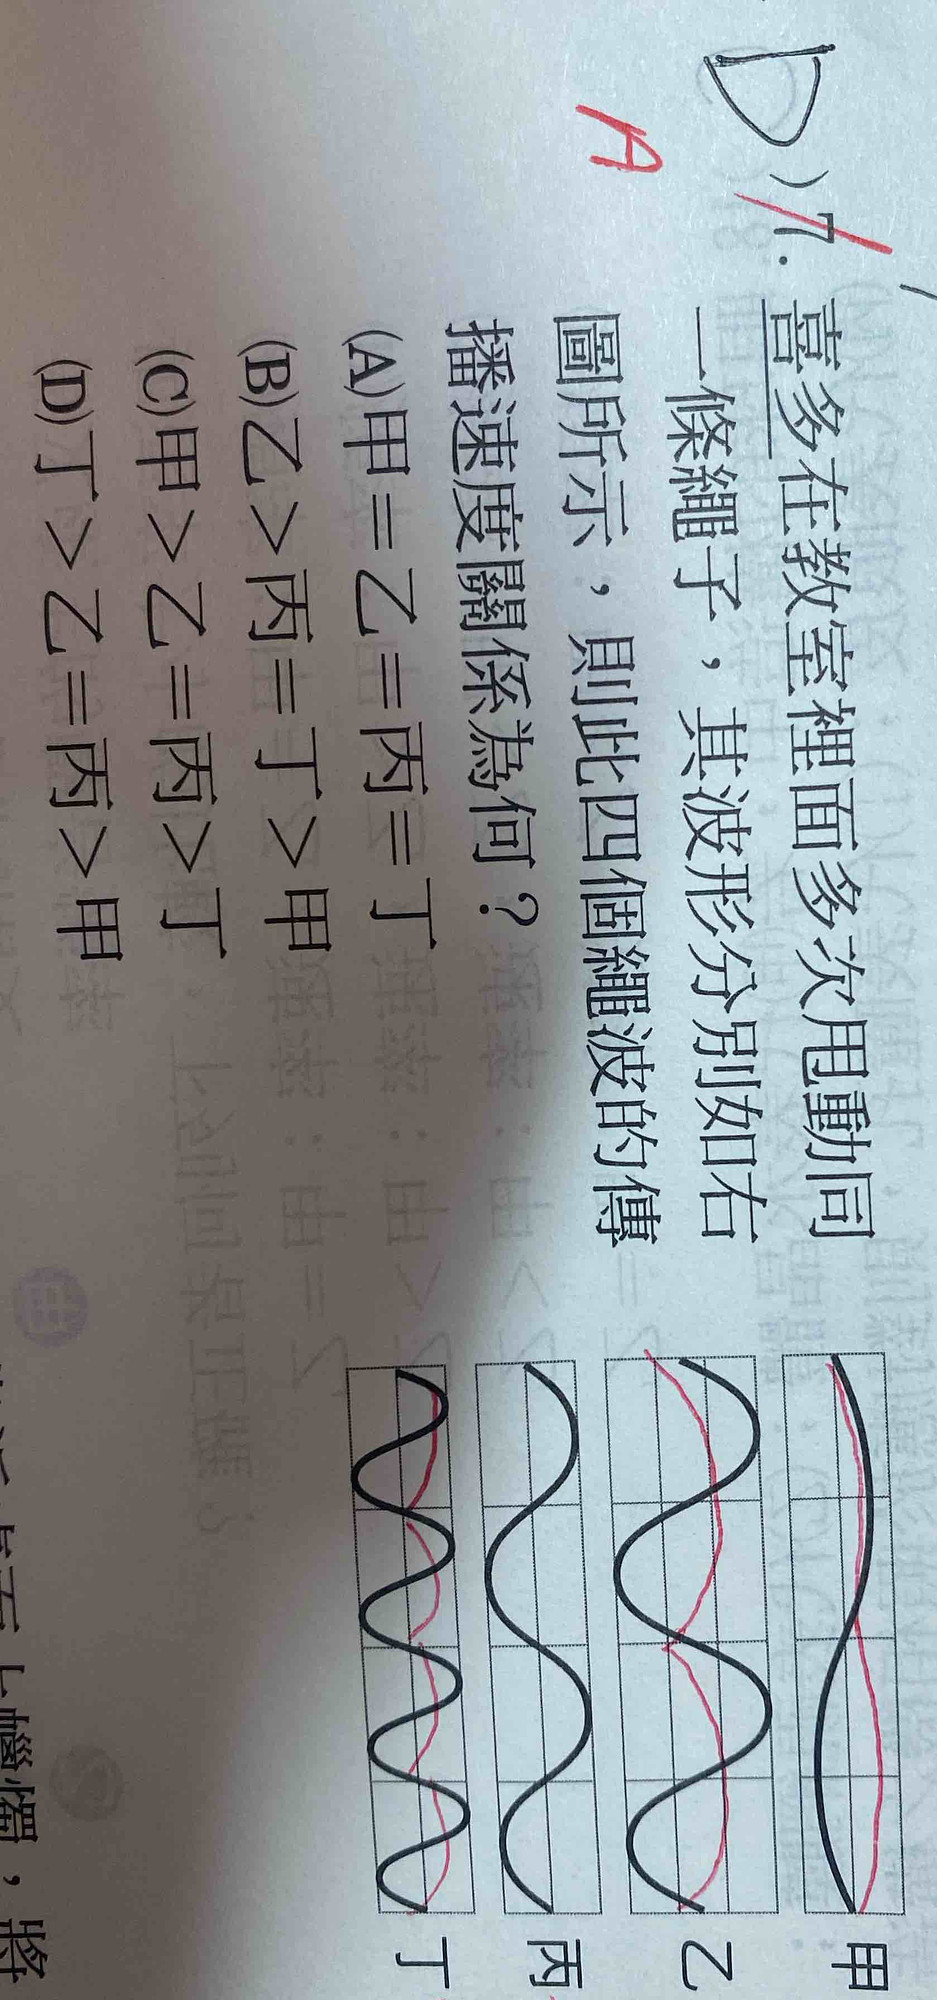 D)7. 喜多在教室裡面多次甩動同
A
一條繩子，其波形分別如右
圖所示，則此四個繩波的傳
播速度關係為何？
(A)甲＝乙＝丙＝丁
(B)乙＞丙＝丁＞甲
(C)甲＞乙＝丙＞丁
(D)丁＞乙＝丙＞甲
甲
乙
丙
丁